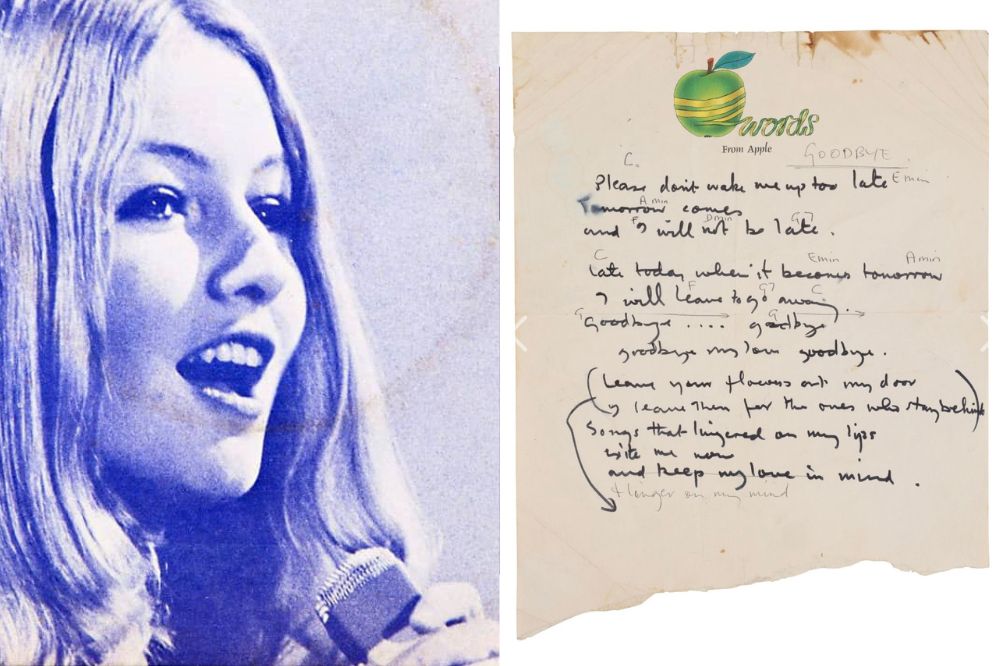 words
From Apple
GOODBYE
C.
Please don't wake me up too late Emin
Amin
Tomorrow comes
F Dmin G7
and I will not be late.
C Emin Amin
Late today when it becomes tomorrow
F G7 C
I will leave to go away.
G G
goodbye .... goodbye
goodbye my love goodbye.
(Leave your flowers at my door
leave them for the ones who stay behind)
Songs that lingered on my lips
xite me now
and keep my love in mind.
+ linger on my mind